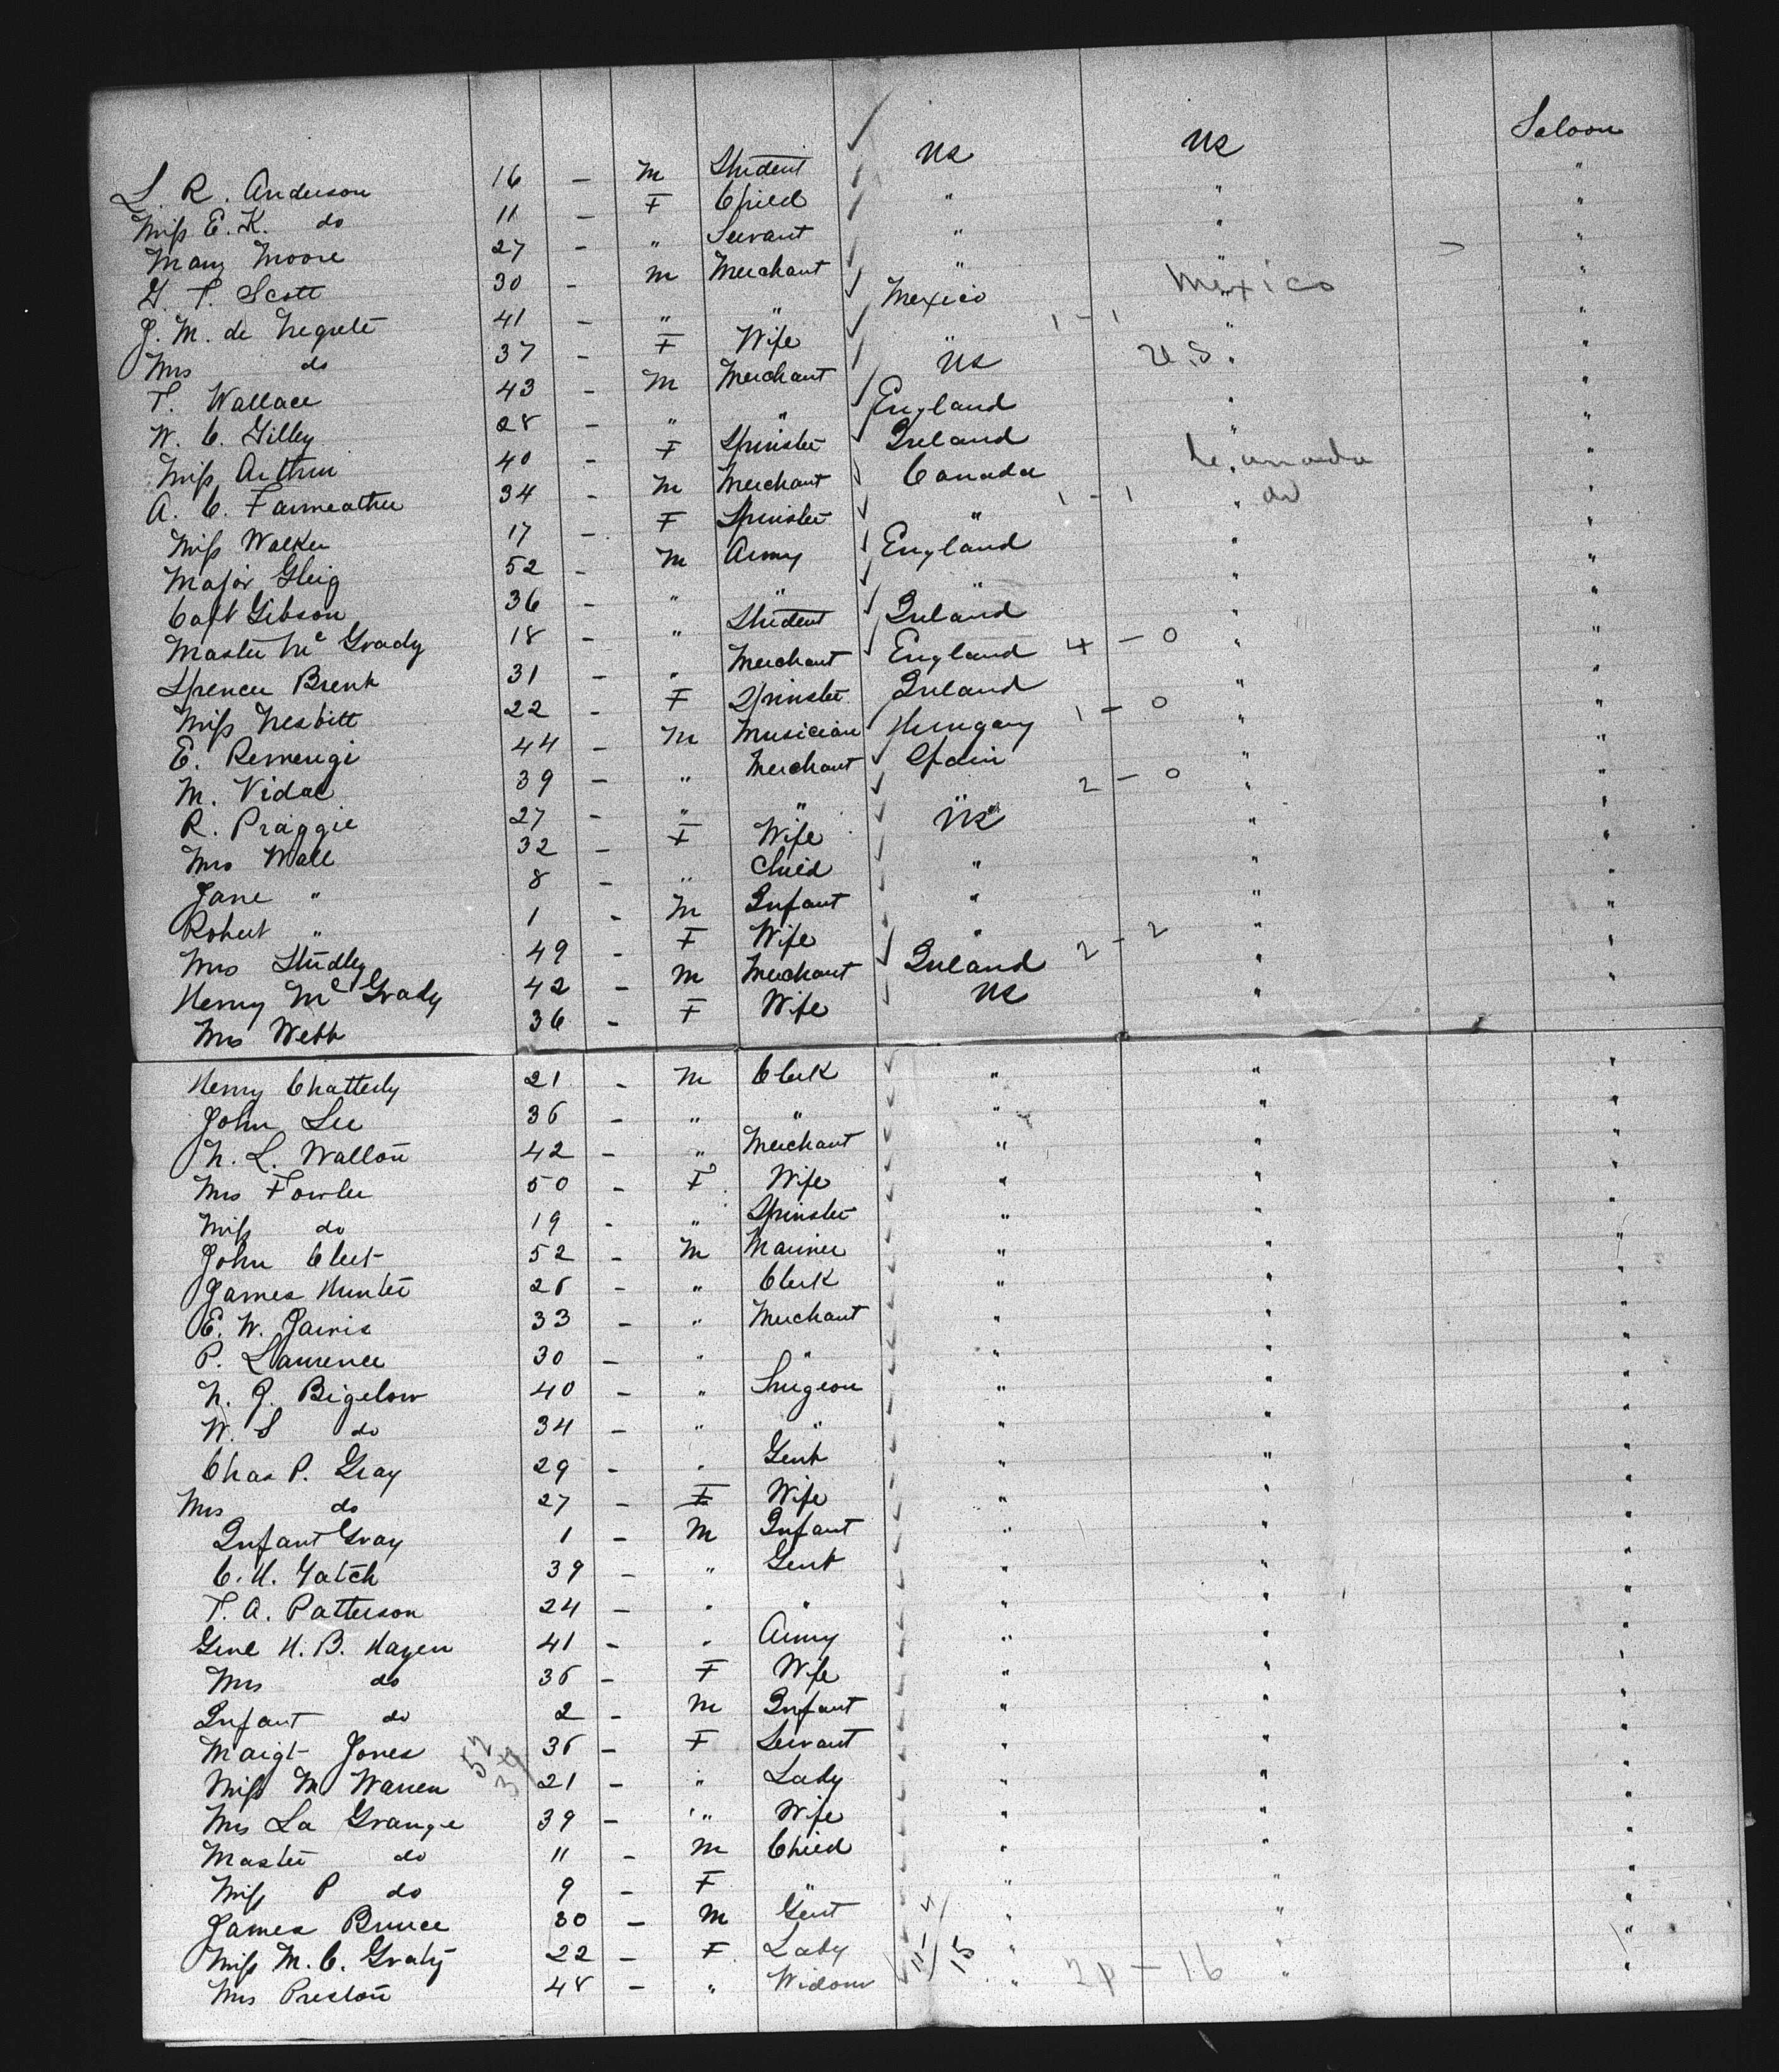 L. R. Anderson 16 – M Student US US Saloon
Miss E. K. do 11 – F Child " " "
Mary Moore 27 – " Servant " " "
G. T. Scott 30 – M Merchant " " "
J. M. de Negrete 41 – " " Mexico " Mexico "
Mrs do 37 – F Wife " 1 – 1 " "
T. Wallace 43 – M Merchant US U.S. " "
W. C. Gilley 28 – " " England " "
Miss Arthur 40 – F Spinster Ireland " "
A. C. Fairweather 34 – M Merchant Canada " Canada "
Miss Walker 17 – F Spinster " 1 – 1 " do "
Major Gleig 52 – M Army England " "
Capt Gibson 36 – " " " " "
Master McGrady 18 – " Student Ireland " "
Spencer Brent 31 – " Merchant England 4 – 0 " "
Miss Nesbitt 22 – F Spinster Ireland " "
E. Remenyi 44 – M Musician Hungary 1 – 0 " "
M. Vidal 39 – " Merchant Spain " "
R. Praggie 27 – " " " 2 – 0 " "
Mrs Wall 32 – F Wife US " "
Jane " 8 – " Child " " "
Robert " 1 – M Infant " " "
Mrs Studley 49 – F Wife " " "
Henry McGrady 42 – M Merchant Ireland 2 – 2 " "
Mrs Webb 36 – F Wife US " "
Henry Chatterly 21 – M Clerk " " "
John Lee 36 – " " " " "
N. L. Walton 42 – " Merchant " " "
Mrs Fowler 50 – F Wife " " "
Miss do 19 – " Spinster " " "
John Cleet 52 – M Mariner " " "
James Hunter 26 – " Clerk " " "
E. W. Jarvis 33 – " Merchant " " "
P. Lawrence 30 – " " " " "
N. J. Bigelow 40 – " Surgeon " " "
W. S do 34 – " " " " "
Chas P. Gray 29 – " Gent " " "
Mrs do 27 – F Wife " " "
Infant Gray 1 – M Infant " " "
C. H. Gatch 39 – " Gent " " "
T. A. Patterson 24 – " " " " "
Genl H. B. Hazen 41 – " Army " " "
Mrs do 36 – F Wife " " "
Infant do 2 – M Infant " " "
Margt Jones 36 – F Servant " " "
52
39
Miss M Warren 21 – " Lady " " "
Mrs La Grange 39 – " Wife " " "
Master do 11 – M Child " " "
Miss P do 9 – F " " " "
James Bruce 30 – M Gent " " "
Miss M. C. Graty 22 – F Lady " " "
Mrs Preston 48 – " Widow " 2p – 16 " "